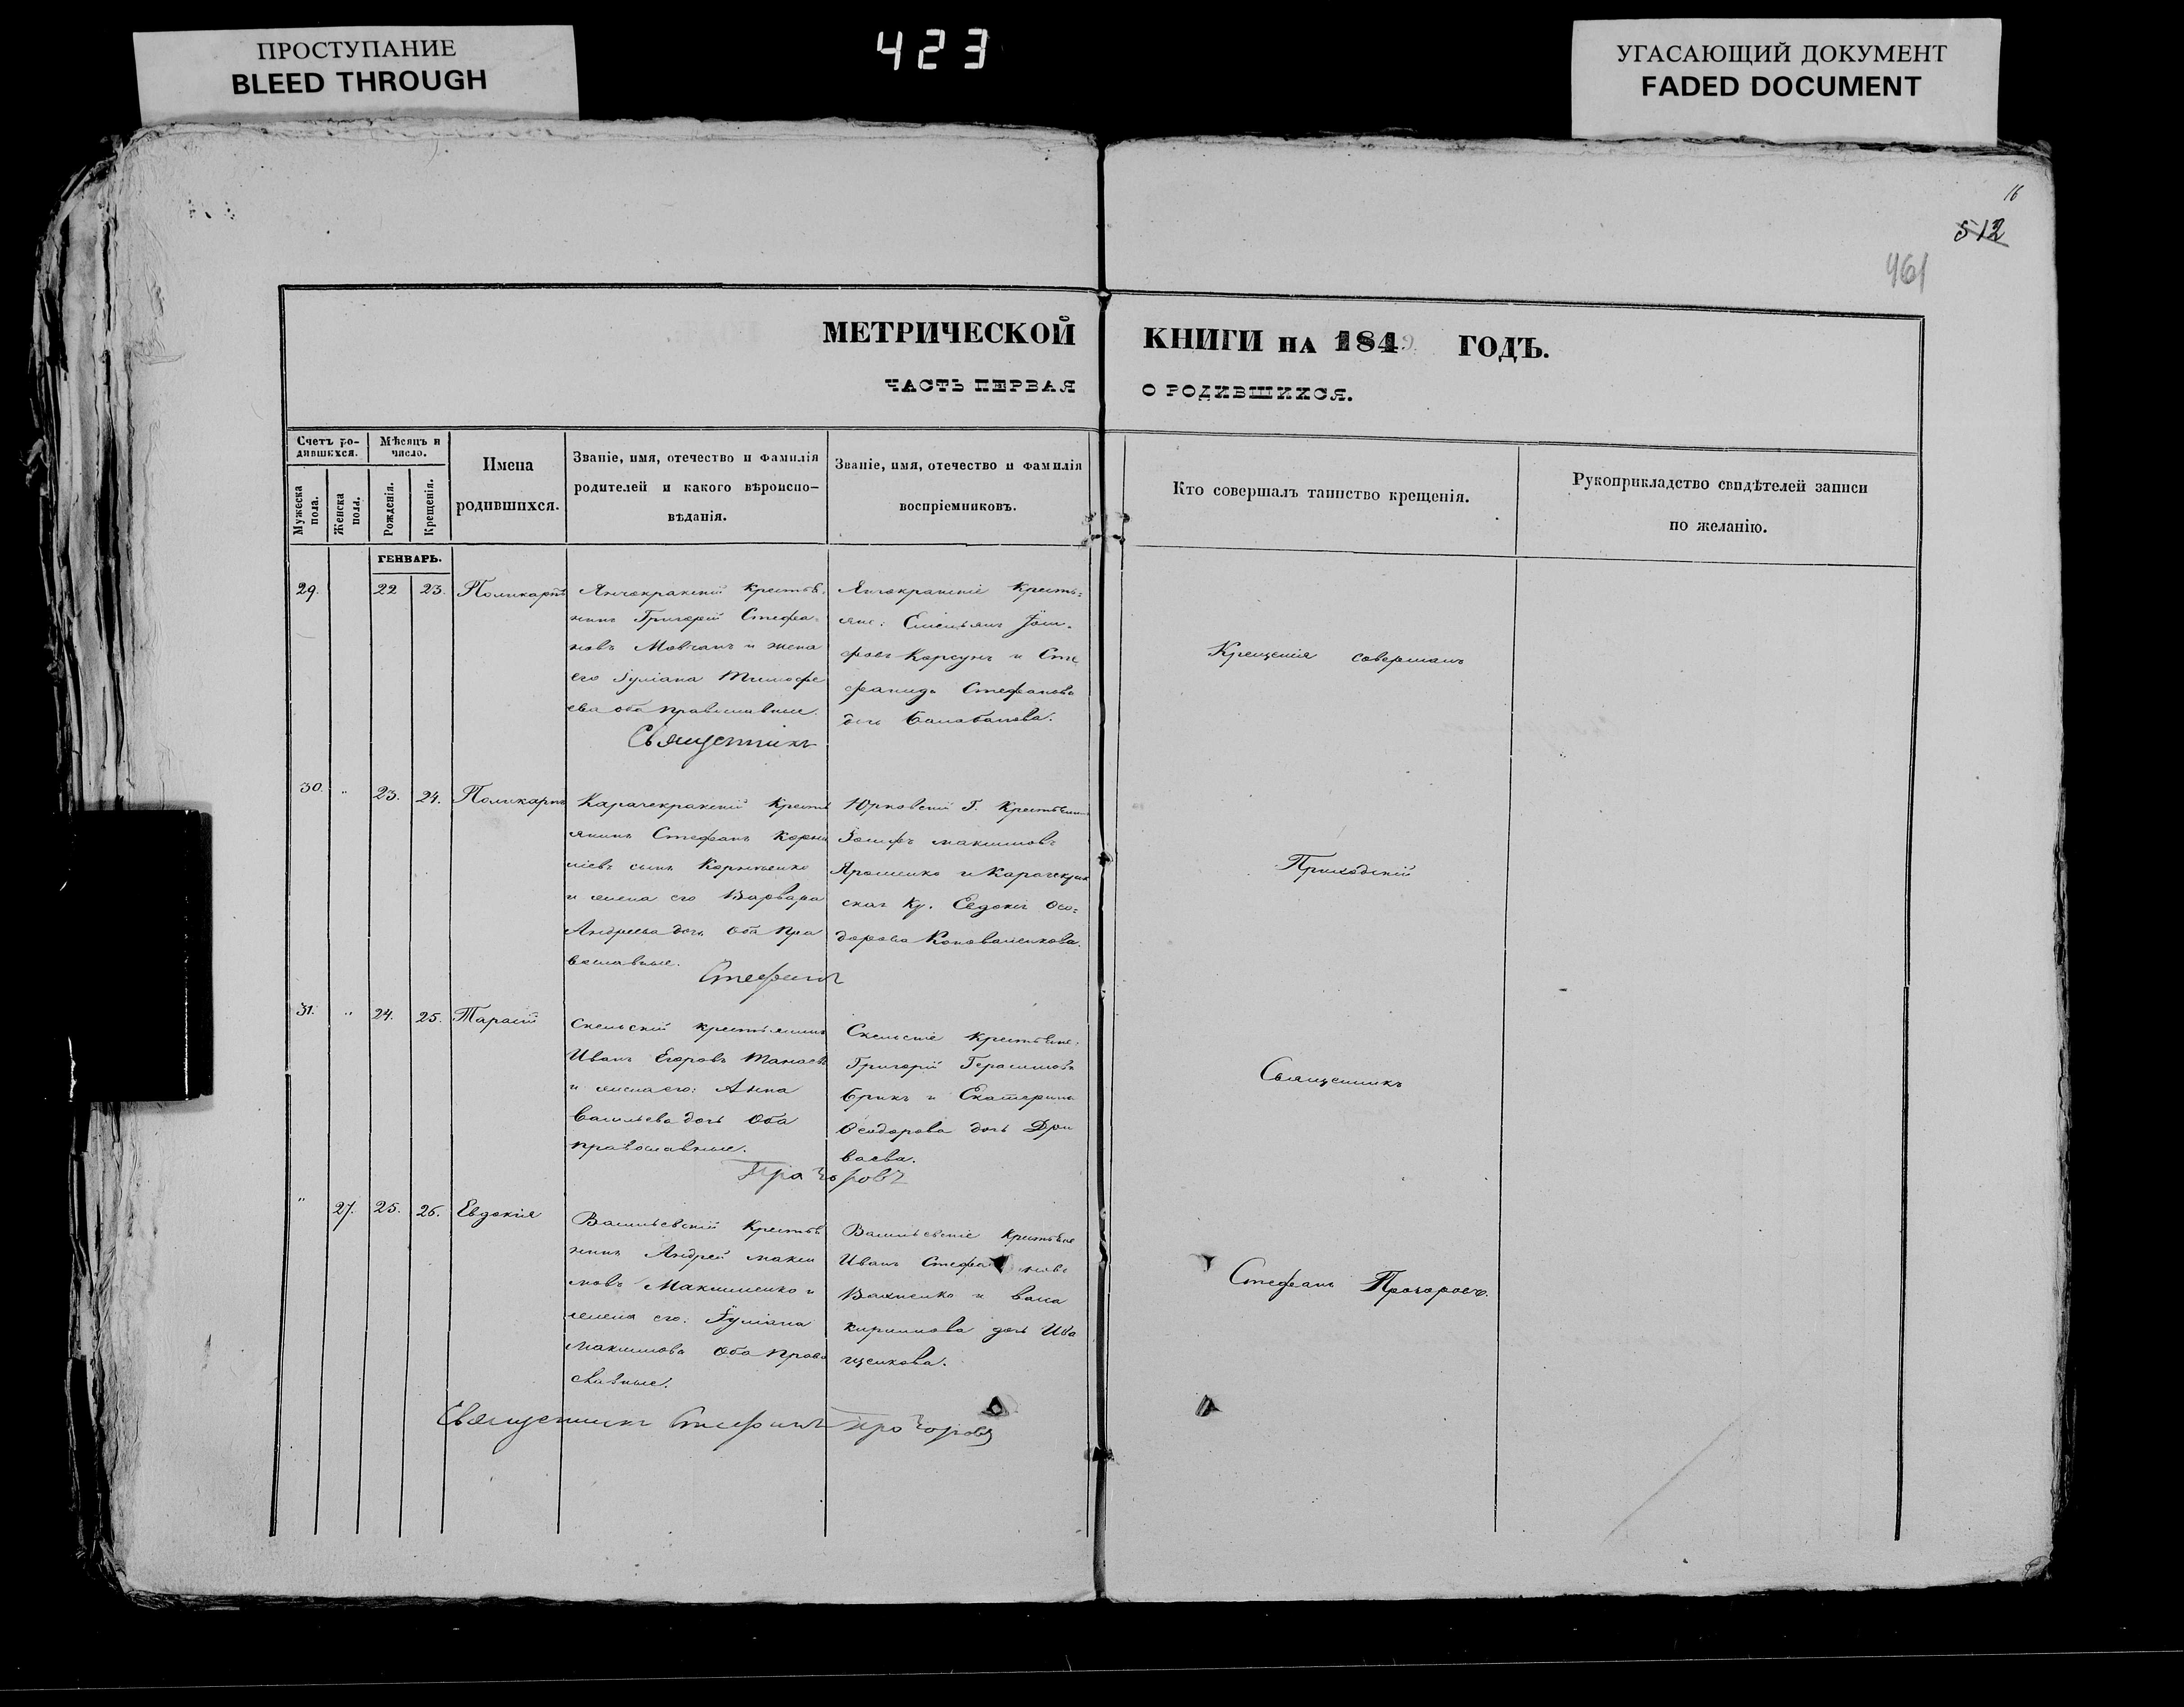 ПРОСТУПАНИЕ
BLEED THROUGH
423
УГАСАЮЩИЙ ДОКУМЕНТ
FADED DOCUMENT
16
512
461
МЕТРИЧЕСКОЙ КНИГИ НА 1849 ГОДЪ.
ЧАСТЬ ПЕРВАЯ О РОДИВШИХСЯ.
Счетъ ро-
дившихся.
Мужеска
пола.
Женска
пола.
Мѣсяцъ и
число.
Рожденія.
Крещенія.
Имена
родившихся.
Званіе, имя, отечество и фамилія
родителей и какого вѣроиспо-
вѣданія.
Званіе, имя, отечество и фамилія
воспріемниковъ.
Кто совершалъ таинство крещенія.
Рукоприкладство свидѣтелей записи
по желанію.
ГЕНВАРЬ.
29. 22 23. Поликарпъ
Янчокракскій крестья-
нинъ Григорій Стефа-
новъ Мовчанъ и жена
его Іуліана Тимофе
ева оба православные.
Янчокракскіе кресть=
яне: Емельянъ Іоси-
фовъ Корсунъ и Сте
фанида Стефанова
дочь Балабанова.
Священникъ
Крещенія совершалъ
30. " 23. 24. Поликарпъ
Карачекракскій крест
янинъ Стефанъ Корни
ліевъ сынъ Корніенко
и жена его Варвара
Андреева дочь оба пра
вославные.
Юрковскій Г. Крестьянинъ
Іосифъ Максимовъ
Ярошенко и Карачекрак
ская Кр. Евдокія Ѳео=
дорова Коноваленкова.
Стефанъ
Приходскій
31. " 24. 25. Тарасій
Скельскій крестьянинъ
Иванъ Егоровъ Танасъ
и жена его: Анна
Васильева дочь оба
православные.
Скельскіе крестьяне,
Григорій Герасимовъ
Брикъ и Екатерина
Ѳеодорова дочь
ваева.
Прохоровъ
Священникъ
" 27. 25. 26. Евдокія
Васильевскій Крестья
нинъ Андрей Макси
мовъ Максименко и
жена его: Іуліана
Максимова оба право
славные.
Васильевскіе крестьяне
Иванъ Стефановъ
Вахненко и Васса
Кирилова дочь Ива
щенкова.
Стефанъ Прохоровъ.
Священникъ Стефанъ Прохоровъ